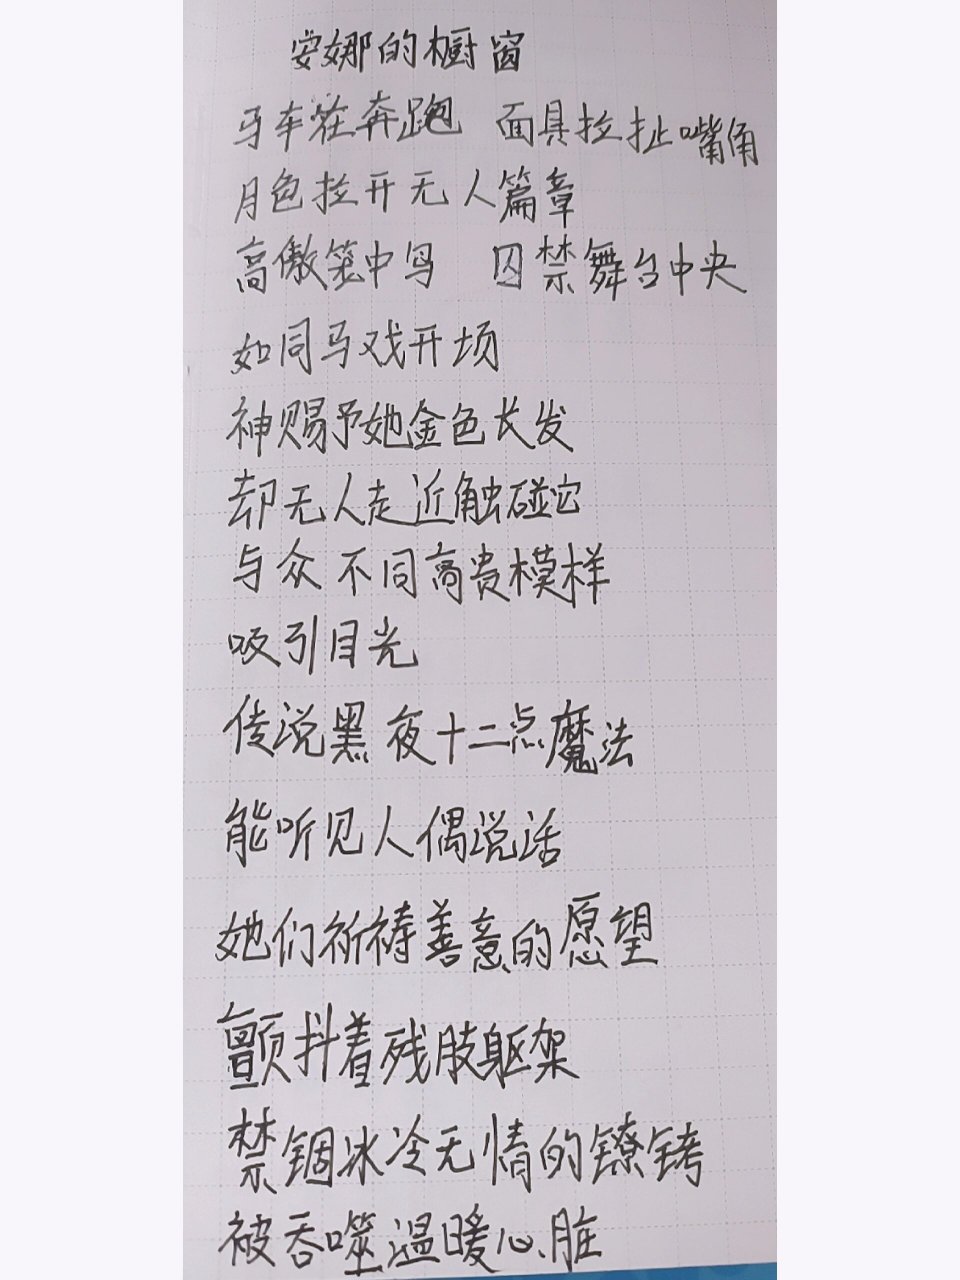 安娜的橱窗
马车在奔跑 面具拉扯嘴角
月色拉开无人篇章
高傲笼中鸟 囚禁舞台中央
如同马戏开场
神赐予她金色长发
却无人走近触碰它
与众不同高贵模样
吸引目光
传说黑夜十二点魔法
能听见人偶说话
她们祈祷善意的愿望
颤抖着残肢躯架
禁锢冰冷无情的镣铐
被吞噬温暖心脏